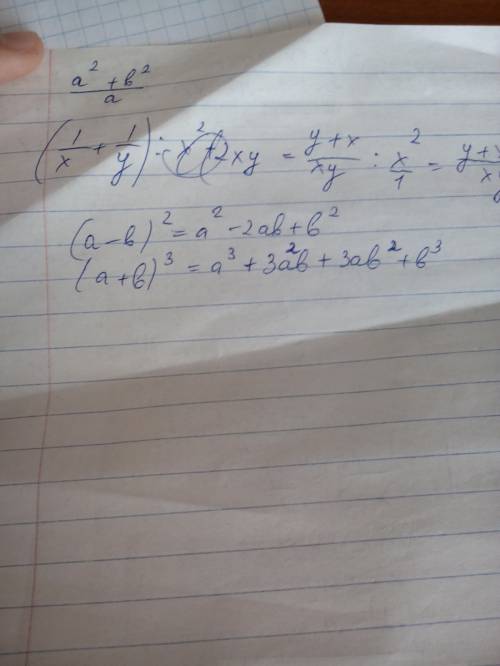 a² + b²
a
(1/x + 1/y) : x² + 2xy = (y + x)/(xy) : x²/1 = (y + x)/(x
(a − b)² = a² − 2ab + b²
(a + b)³ = a³ + 3a²b + 3ab² + b³